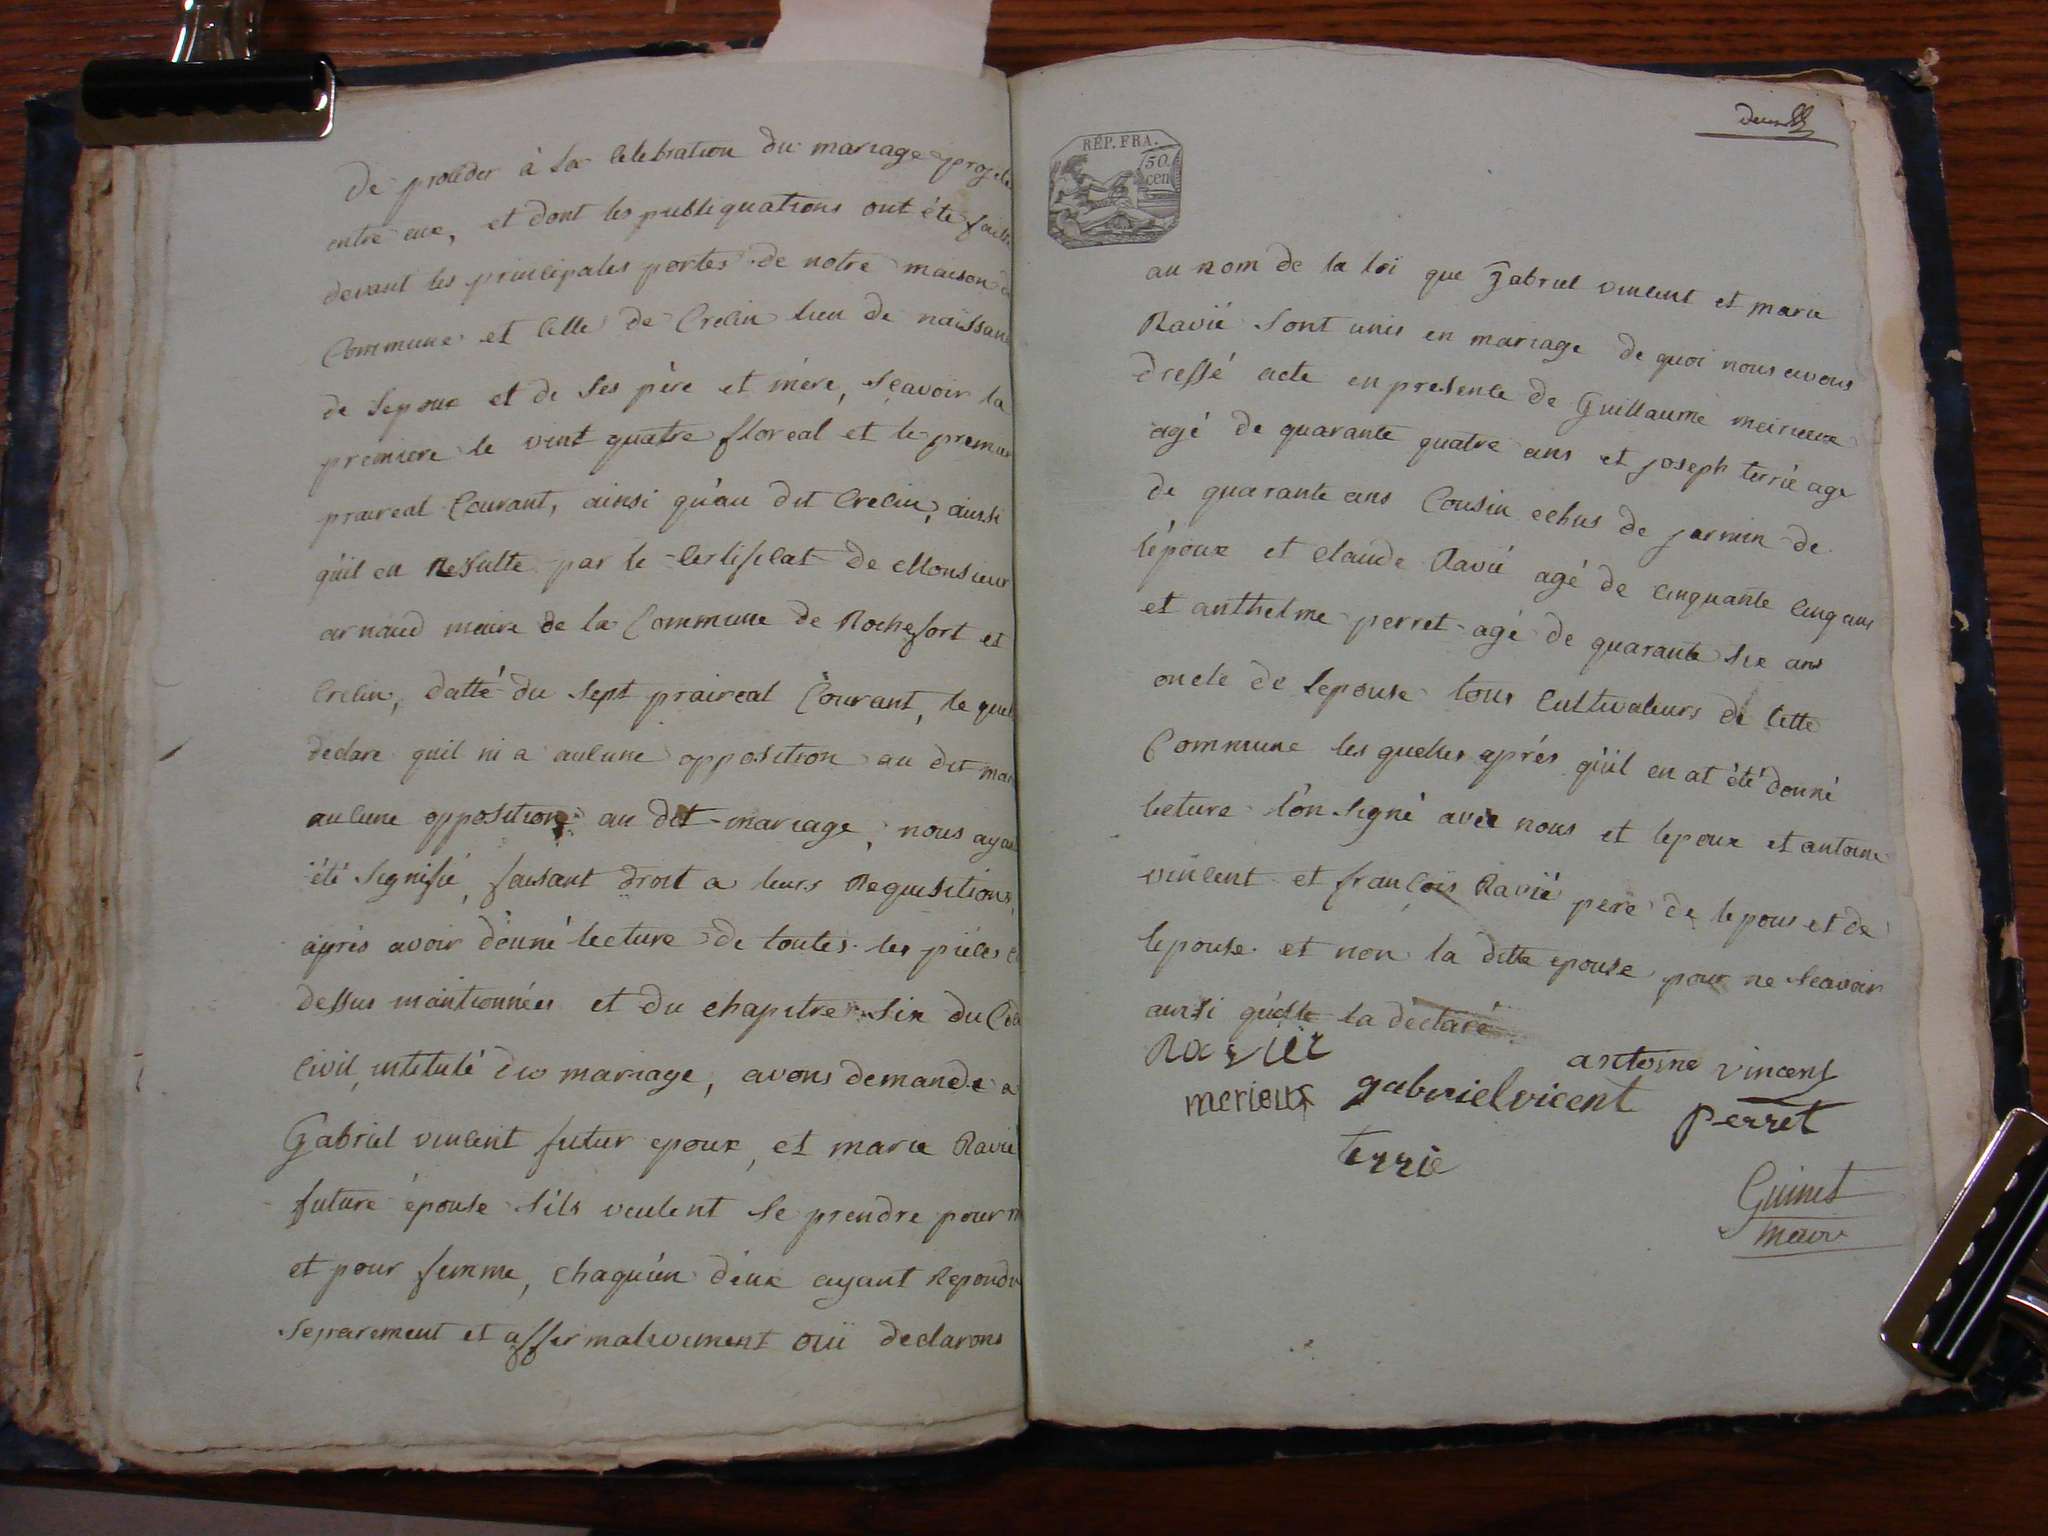 De proceder à la Celebration du mariage projeté
entre eux, et dont les publiquations ont été faites
devant les principales portes de notre maison
Commune et Celle de Crelin lieu de naissance
de Lepoux et de Ses père et mère, Sçavoir la
premiere le vint quatre floreal et le premier
praireal Courant, ainsi qu'au dit Crelin, ainsi
qu'il en Resulte par le Certificat de Monsieur
arnaud maire de la Commune de Rochefort et
Crelin, datté du Sept praireal Courant, le quel
declare quil ni a aulcune opposition au dit
aulcune opposition au dit mariage, nous ayant
été Signifié, faisant droit a leurs Requisitions,
après avoir donné lecture de toutes les pièces
dessus maintionnées et du chapitre Six du
Civil, intitulé du mariage, avons demandé a
Gabriel vincent futur epoux, et marie Ravié
future épouse S'ils veulent Se prendre pour
et pour femme, chaqu'un d'eux ayant Repondu
Separement et affermativement oui declarons
REP. FRA.
50
cen
au nom de la loi que Gabriel vincent et marie
Ravié Sont unis en mariage de quoi nous avons
dressé acte en presence de Guillaume meirieux
agé de quarante quatre ans et joseph terrié age
de quarante ans Cousin echus de jarmin de
lépoux et claude Ravié agé de cinquante cinq ans
et anthelme perret agé de quarante Six ans
oncle de Lepouse tous Cultivateurs de Cette
Commune les quelles aprés qu'il en at été donné
lecture l'on Signé avec nous et lepoux et antoine
vincent et françois Ravié pere de lepous et de
lepouse et non la ditte epouse pour ne Sçavoir
ainsi qu'elle la déclaré
Ravier
antoine vincent
merieux gabriel vicent
perret
terrie
Guinet
maire